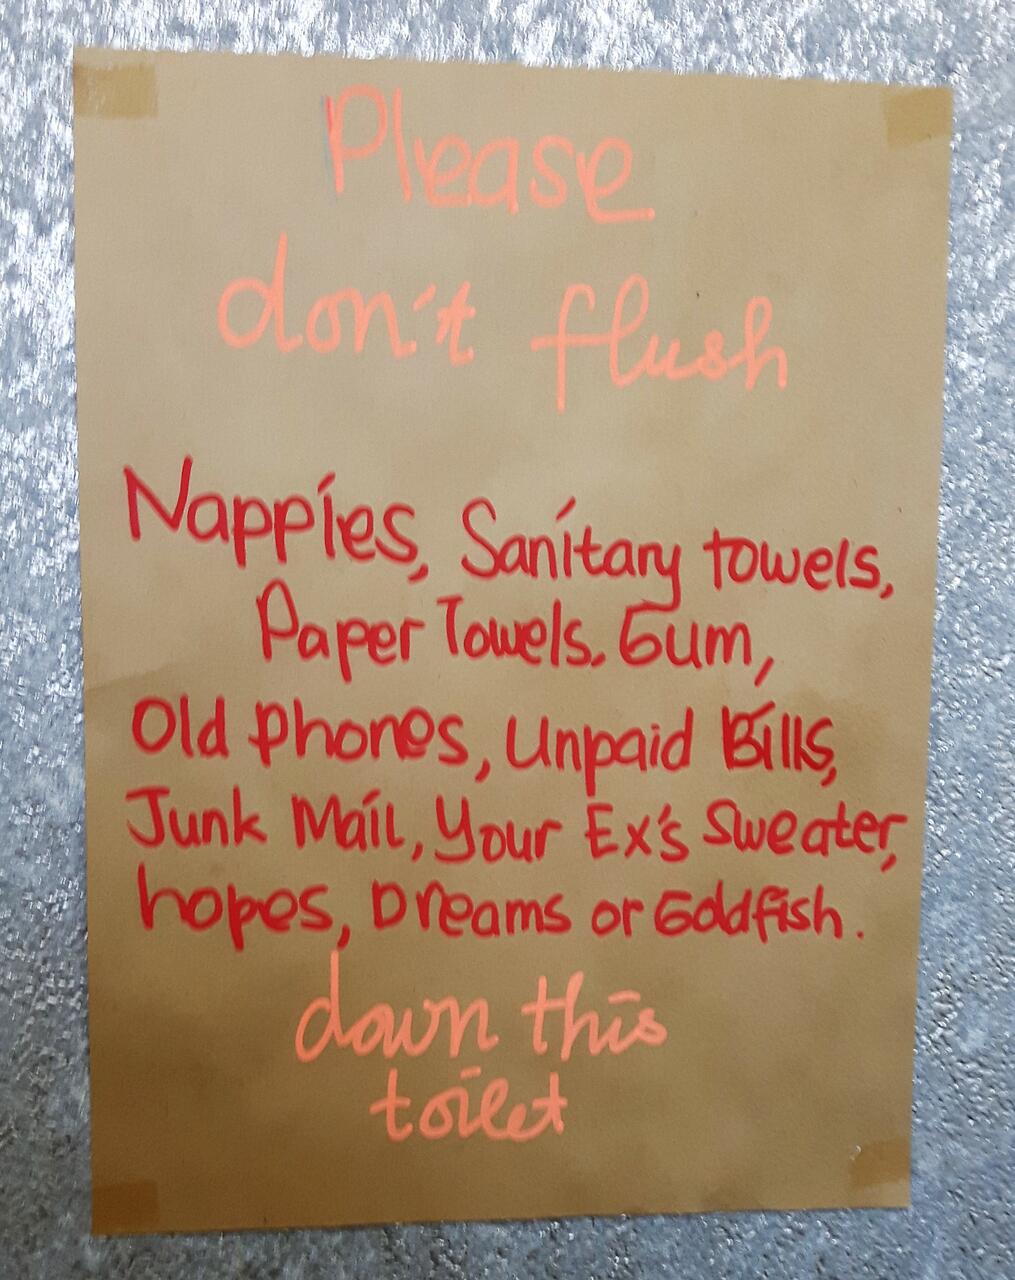 Please
don't flush
Nappies, Sanitary towels,
Paper Towels. Gum,
Old phones, Unpaid Bills,
Junk Mail, Your Ex's Sweater,
hopes, Dreams or Goldfish.
down this
toilet